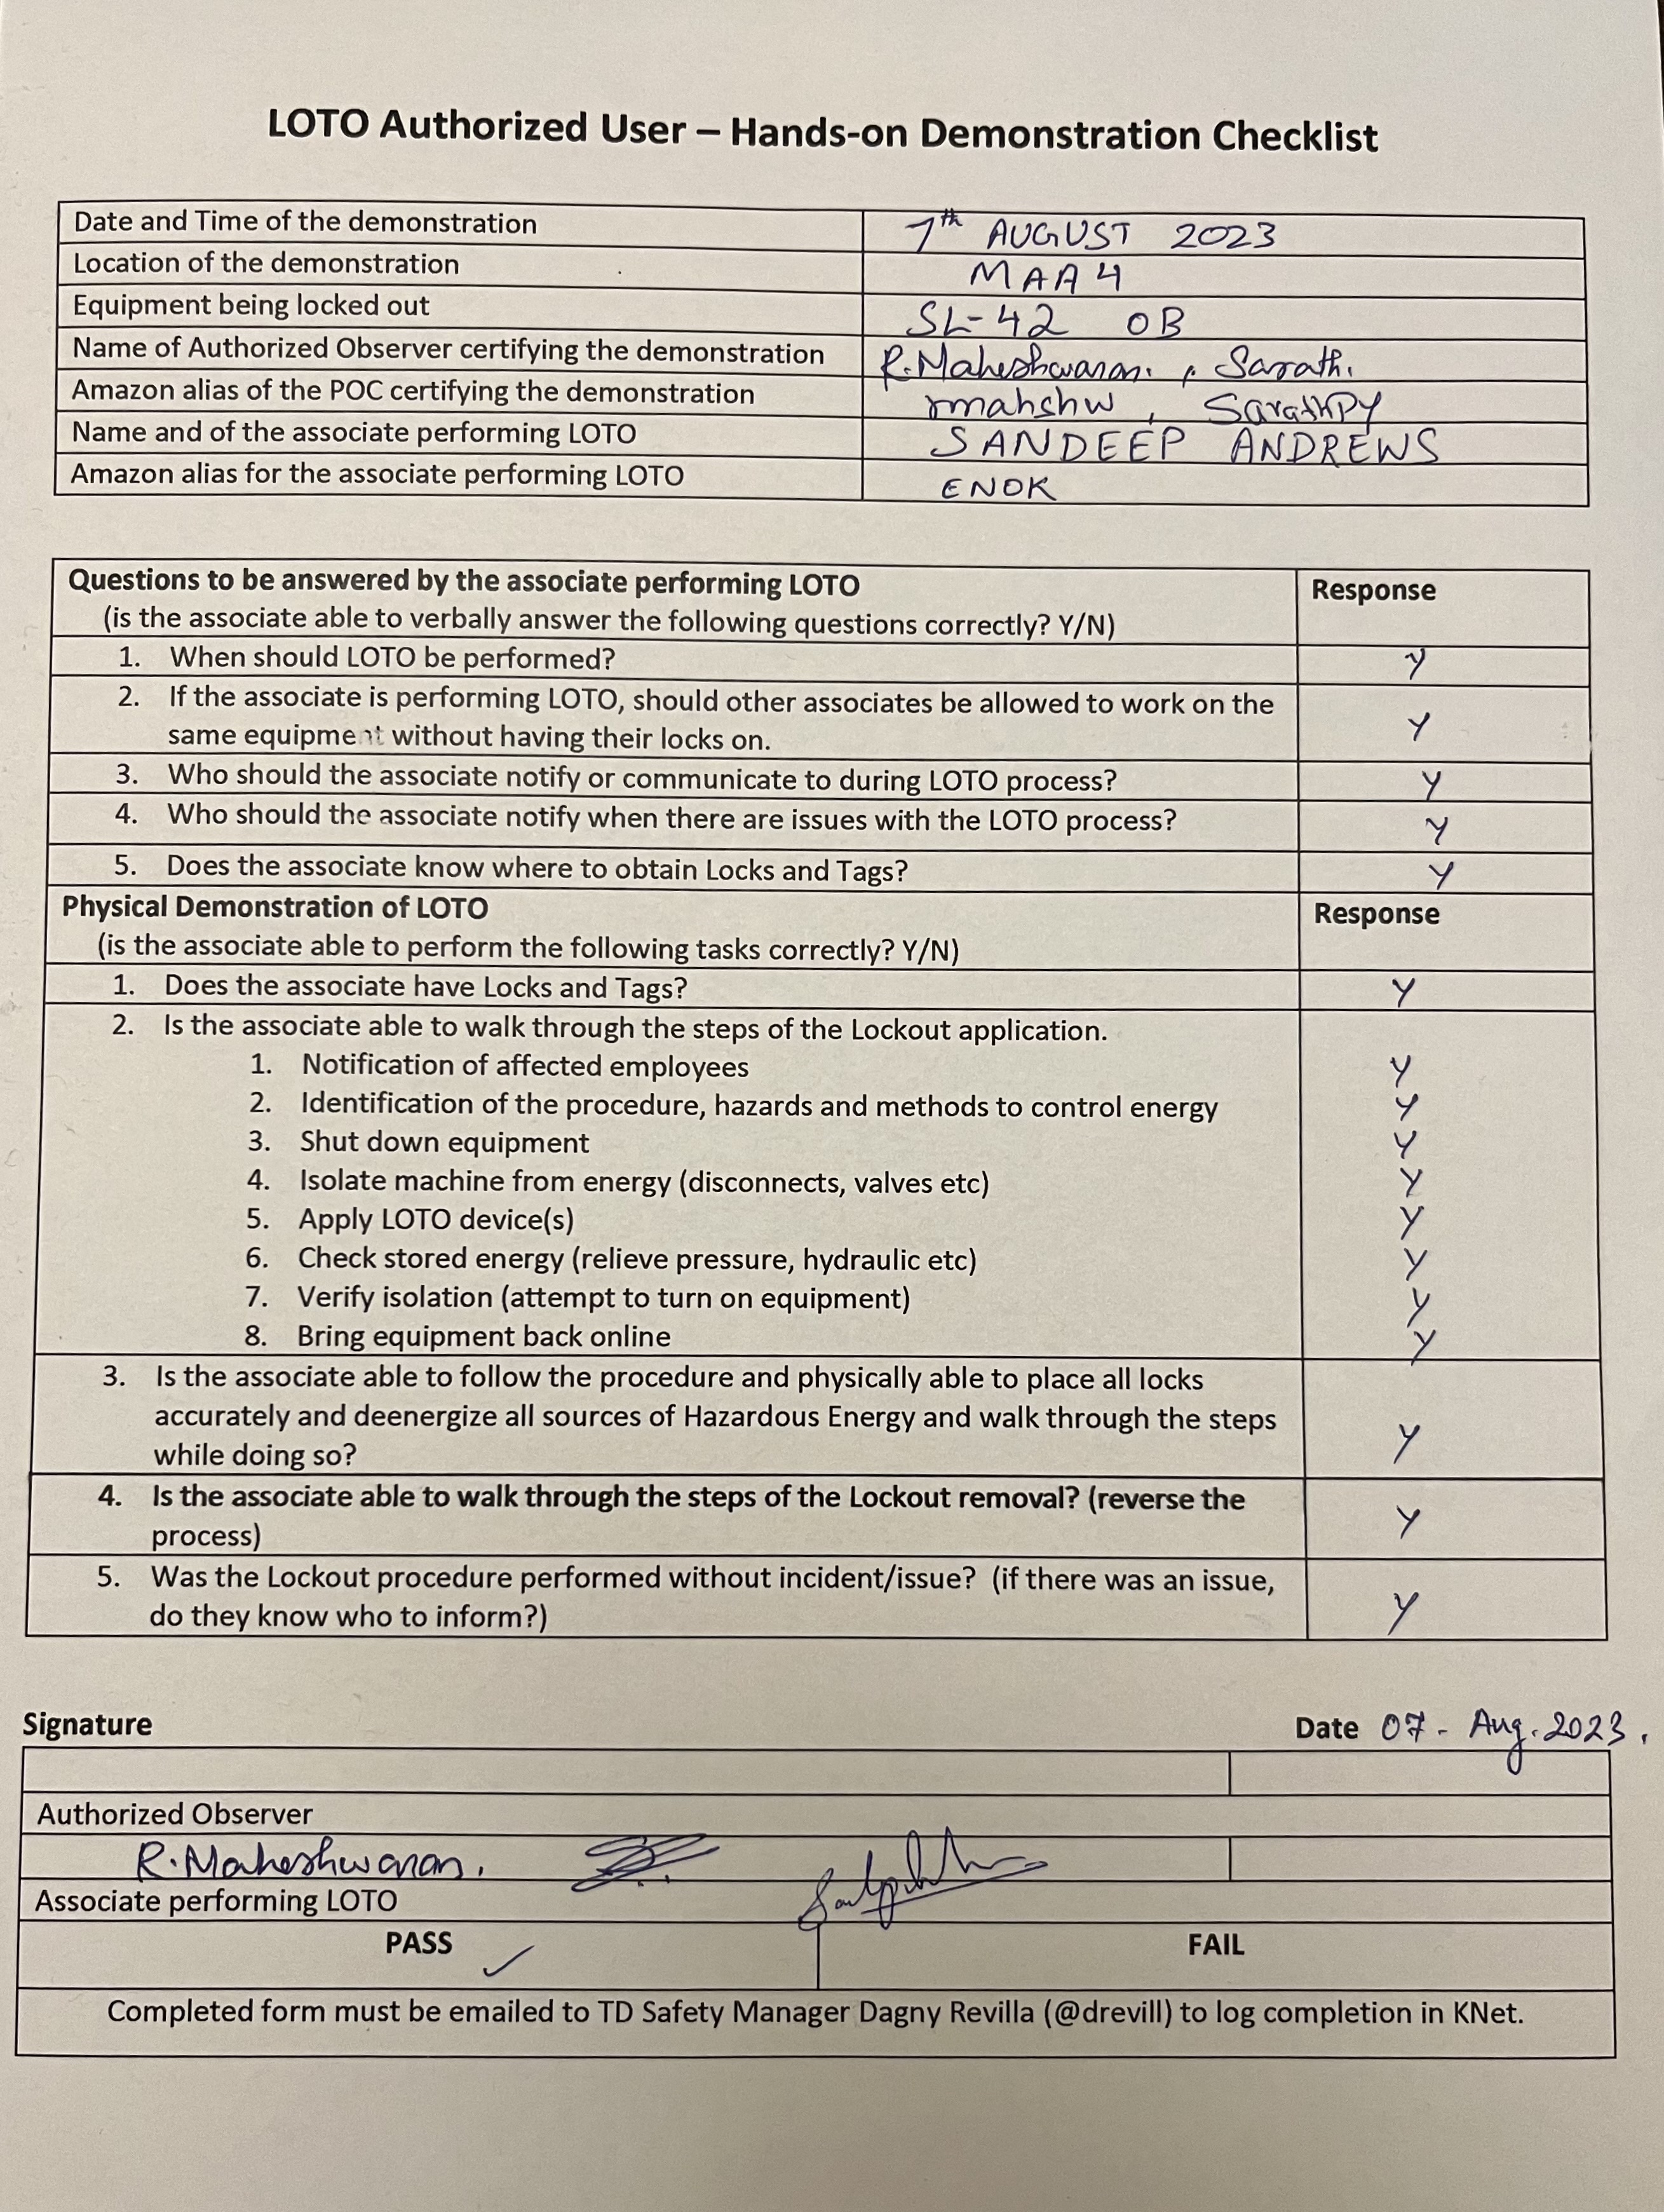 LOTO Authorized User – Hands-on Demonstration Checklist
Date and Time of the demonstration 7th AUGUST 2023
Location of the demonstration MAA4
Equipment being locked out SL-42 OB
Name of Authorized Observer certifying the demonstration R.Maheshwaran. , Sarath.
Amazon alias of the POC certifying the demonstration rmahshw , SarathPY
Name and of the associate performing LOTO SANDEEP ANDREWS
Amazon alias for the associate performing LOTO ENOK
Questions to be answered by the associate performing LOTO Response
(is the associate able to verbally answer the following questions correctly? Y/N)
1. When should LOTO be performed? Y
2. If the associate is performing LOTO, should other associates be allowed to work on the
same equipment without having their locks on. Y
3. Who should the associate notify or communicate to during LOTO process? Y
4. Who should the associate notify when there are issues with the LOTO process? Y
5. Does the associate know where to obtain Locks and Tags? Y
Physical Demonstration of LOTO Response
(is the associate able to perform the following tasks correctly? Y/N)
1. Does the associate have Locks and Tags? Y
2. Is the associate able to walk through the steps of the Lockout application.
1. Notification of affected employees Y
2. Identification of the procedure, hazards and methods to control energy Y
3. Shut down equipment Y
4. Isolate machine from energy (disconnects, valves etc) Y
5. Apply LOTO device(s) Y
6. Check stored energy (relieve pressure, hydraulic etc) Y
7. Verify isolation (attempt to turn on equipment) Y
8. Bring equipment back online Y
3. Is the associate able to follow the procedure and physically able to place all locks
accurately and deenergize all sources of Hazardous Energy and walk through the steps
while doing so? Y
4. Is the associate able to walk through the steps of the Lockout removal? (reverse the
process) Y
5. Was the Lockout procedure performed without incident/issue? (if there was an issue,
do they know who to inform?) Y
Signature Date 07 - Aug. 2023.
Authorized Observer
R.Maheshwaran.
Associate performing LOTO
PASS ✓ FAIL
Completed form must be emailed to TD Safety Manager Dagny Revilla (@drevill) to log completion in KNet.